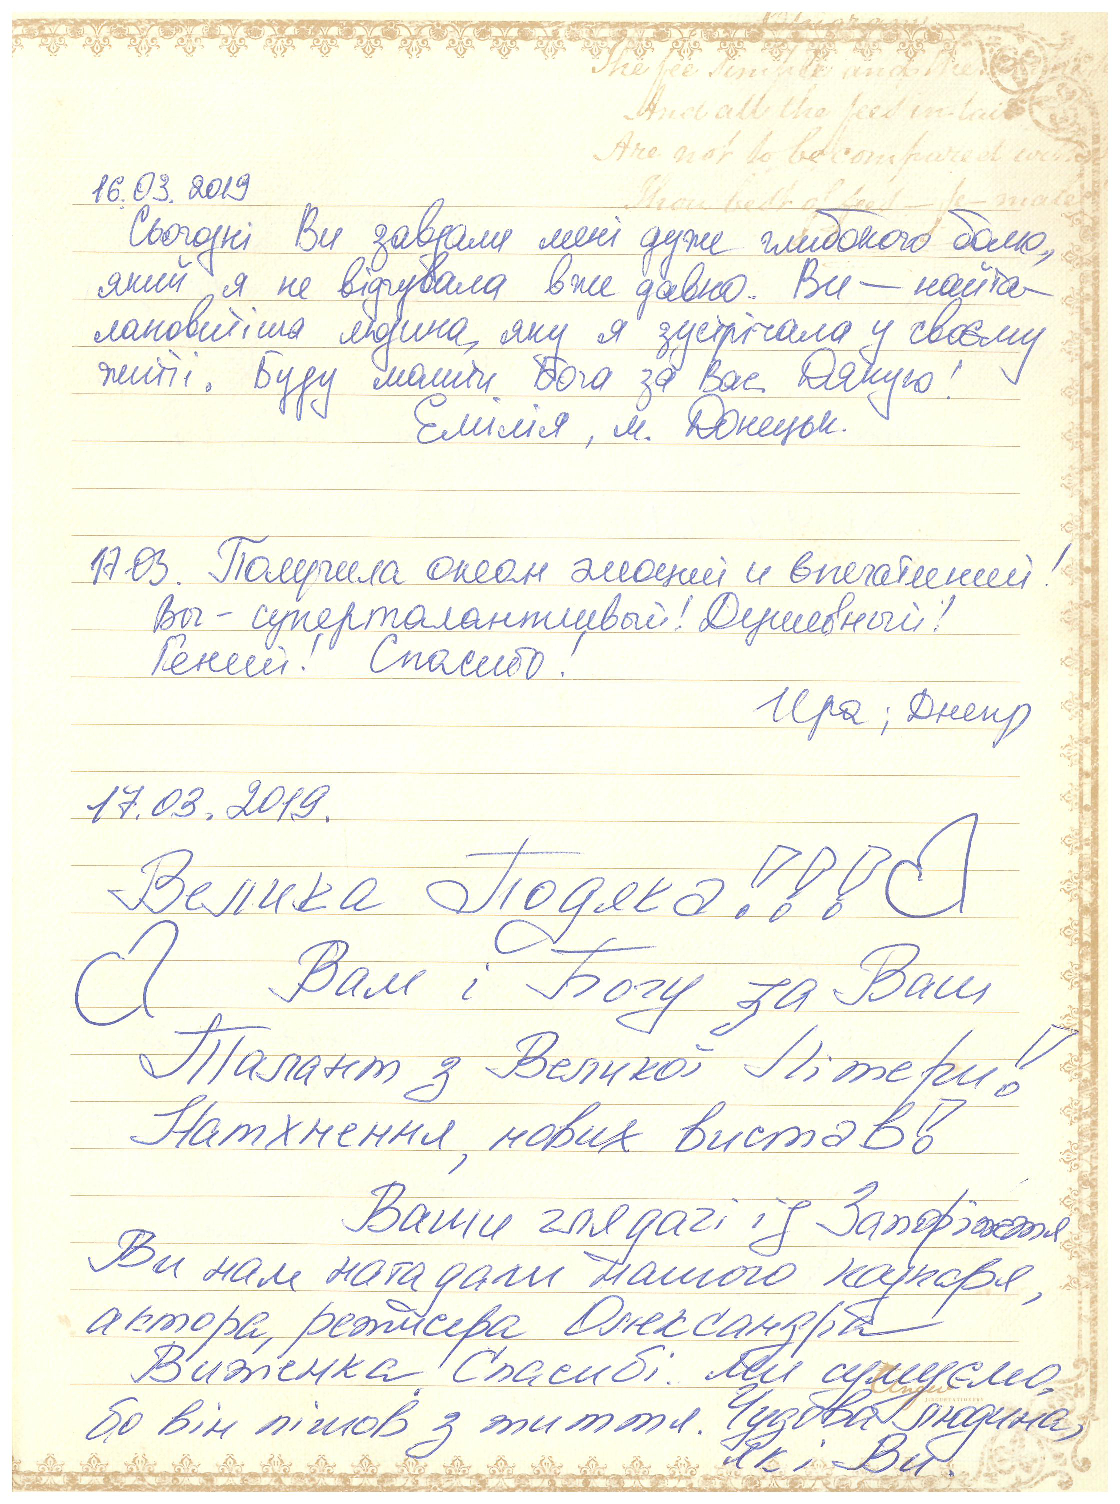 The fee simple and the
And all the feed in-tail
Are not to be compared with
Thou best of feed — fe-male
16.03.2019
Сьогодні Ви завдали мені дуже глибокого болю,
який я не відчувала вже давно. Ви — найта-
лановитіша людина, яку я зустрічала у своєму
житті. Буду молити Бога за Вас. Дякую!
Емілія, м. Донецьк.
17.03. Получила океан эмоций и впечатлений!
Вы - суперталантливый! Душевный!
Гений! Спасибо!
Ира; Днепр
17.03.2019.
Велика Подяка!!!
Вам і Богу за Ваш
Талант з Великої Літери!
Натхнення, нових вистав!
Ваши глядачі із Запоріжжя
Ви нам нагадали нашого казкаря,
актора, режисера Олександра
Виженка. Спасибі. Ми сумуємо,
бо він пішов з життя. Чудова людина,
як і Ви.